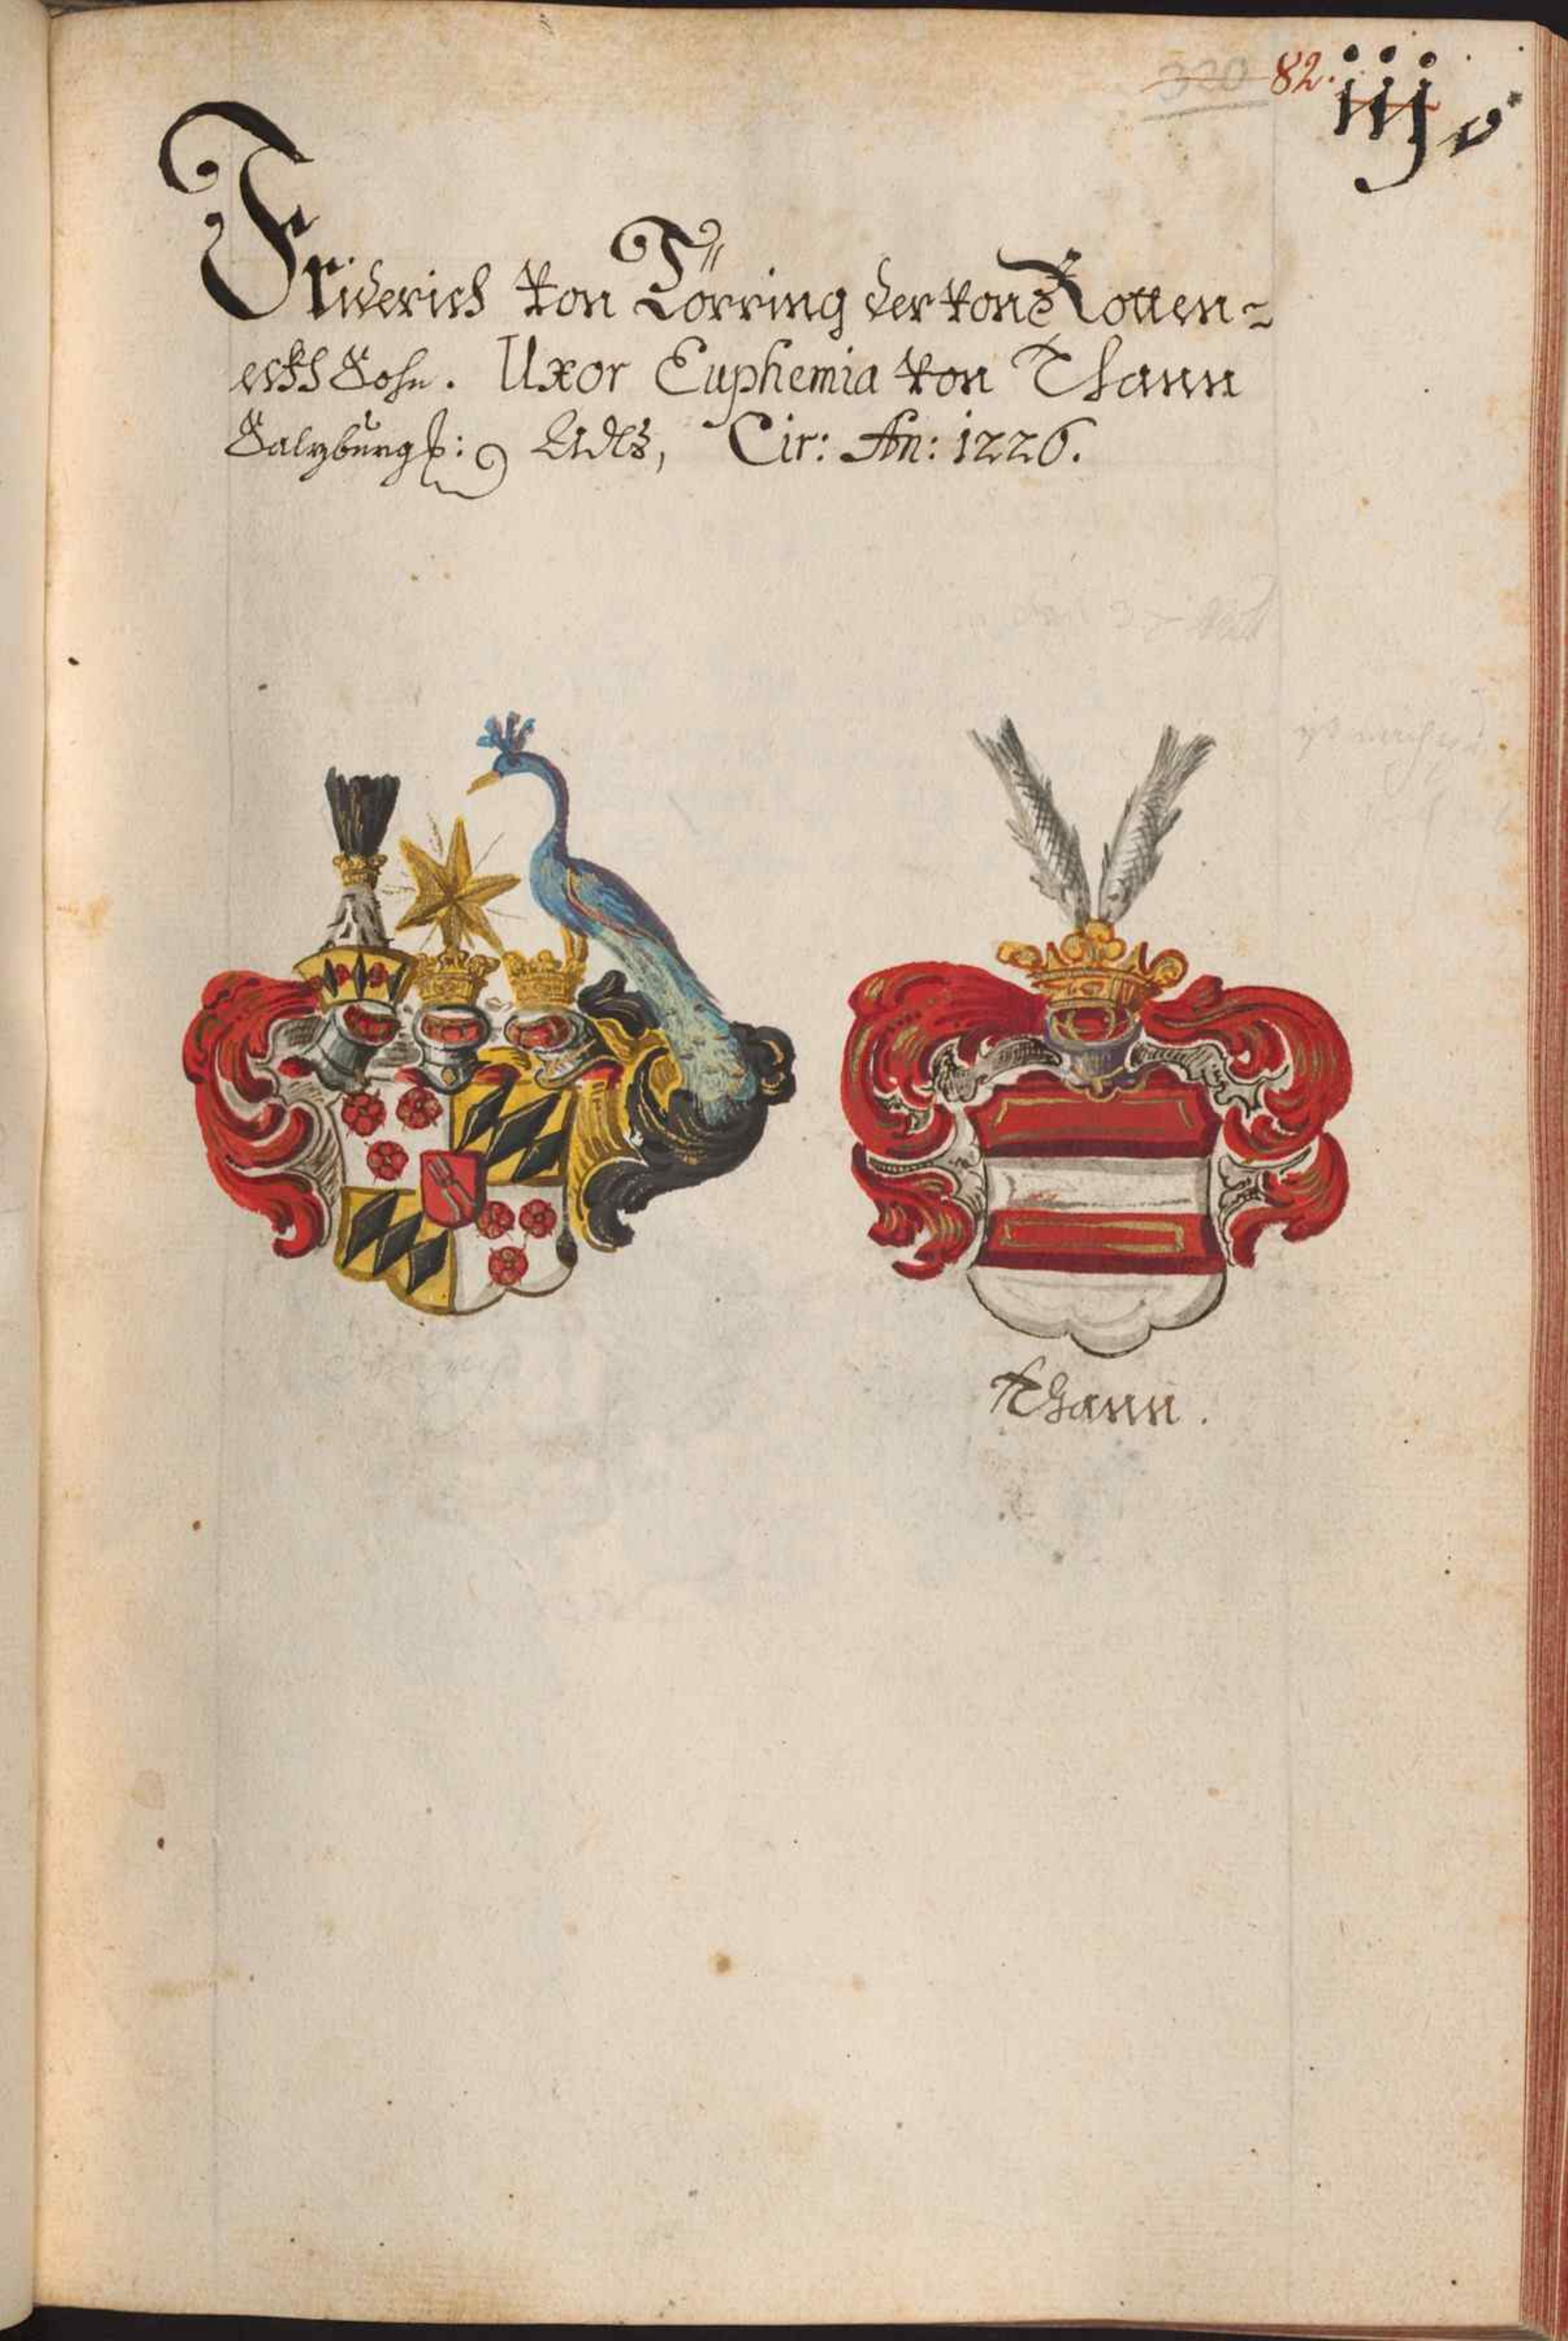 320 82. iij
Friderich von Törring der von Rotten-
eckh Sohn. Uxor Euphemia von Thann
Salzburg: Adls, Cir: An: 1226.
Thann.